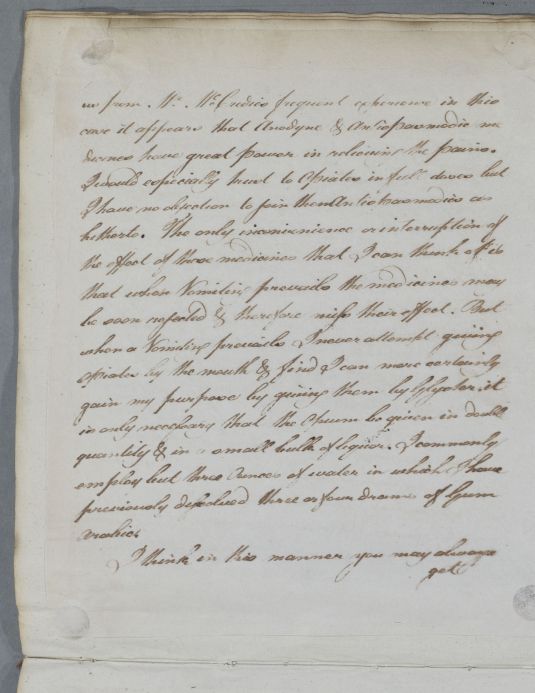 us from Mr. McCredies frequent experience in this
case it appears that Anodyne & Antispasmodic me
dicines have great power in relieving the pains.
I would especially trust to Opiates in full doses but
I have no objection to join them Antispasmodics as
hitherto. The only inconvenience or interruption of
the effect of these medicines that I can think off is
that when Vomiting prevails the medicines may
be soon rejected & therefore miss their effect. But
when a Vomiting prevails I never attempt giving
opiates by the mouth & find I can more certainly
gain my purpose by giving them by Glyster. it
is only necessary that the Opium be given in double
quantity & in a small bulk of liquor. I commonly
employ but three Ounces of water in which I have
previously dissolved three or four drams of Gum
Arabic.
I think in this manner you may always
get